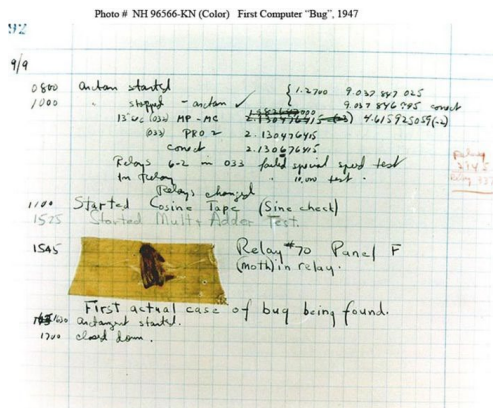 Photo # NH 96566-KN (Color) First Computer "Bug", 1947
92
9/9
0800 antan started
1000 " stopped - antan ✓ { 1.2700 9.037 847 025
9.037 846 995 conect
13" uc (032) MP - MC 2.130476415 (-3) 4.615925059(-2)
(033) PRO 2 2.130476415
conect 2.130676415
Relays 6-2 in 033 failed special speed test
In Relay " 10,000 test.
Relays changed
1100 Started Cosine Tape (Sine check)
1525 Started Mult+ Adder Test.
1545 Relay #70 Panel F
(moth) in relay.
First actual case of bug being found.
1630 antangent started.
1700 closed down.